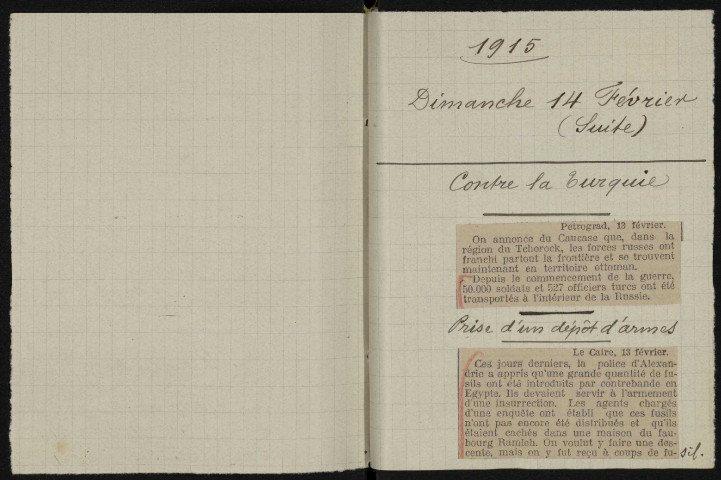 1915
Dimanche 14 Février
(Suite)
Contre la Turquie
Petrograd, 13 février.
On annonce du Caucase que, dans la
région du Tchorock, les forces russes ont
franchi partout la frontière et se trouvent
maintenant en territoire ottoman.
Depuis le commencement de la guerre,
50.000 soldats et 527 officiers turcs ont été
transportés à l'intérieur de la Russie.
Prise d'un dépôt d'armes
Le Caire, 13 février.
Ces jours derniers, la police d'Alexan-
drie a appris qu'une grande quantité de fu-
sils ont été introduits par contrebande en
Egypte. Ils devaient servir à l'armement
d'une insurrection. Les agents chargés
d'une enquête ont établi que ces fusils
n'ont pas encore été distribués et qu'ils
étaient cachés dans une maison du fau-
bourg Ramleh. On voulut y faire une des-
cente, mais on y fut reçu à coups de fu-sil.